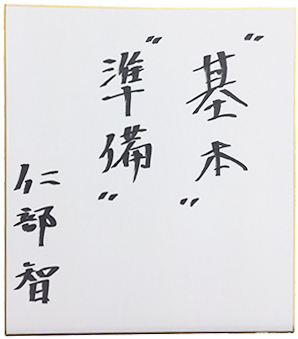 "基本"
"準備"
仁部智